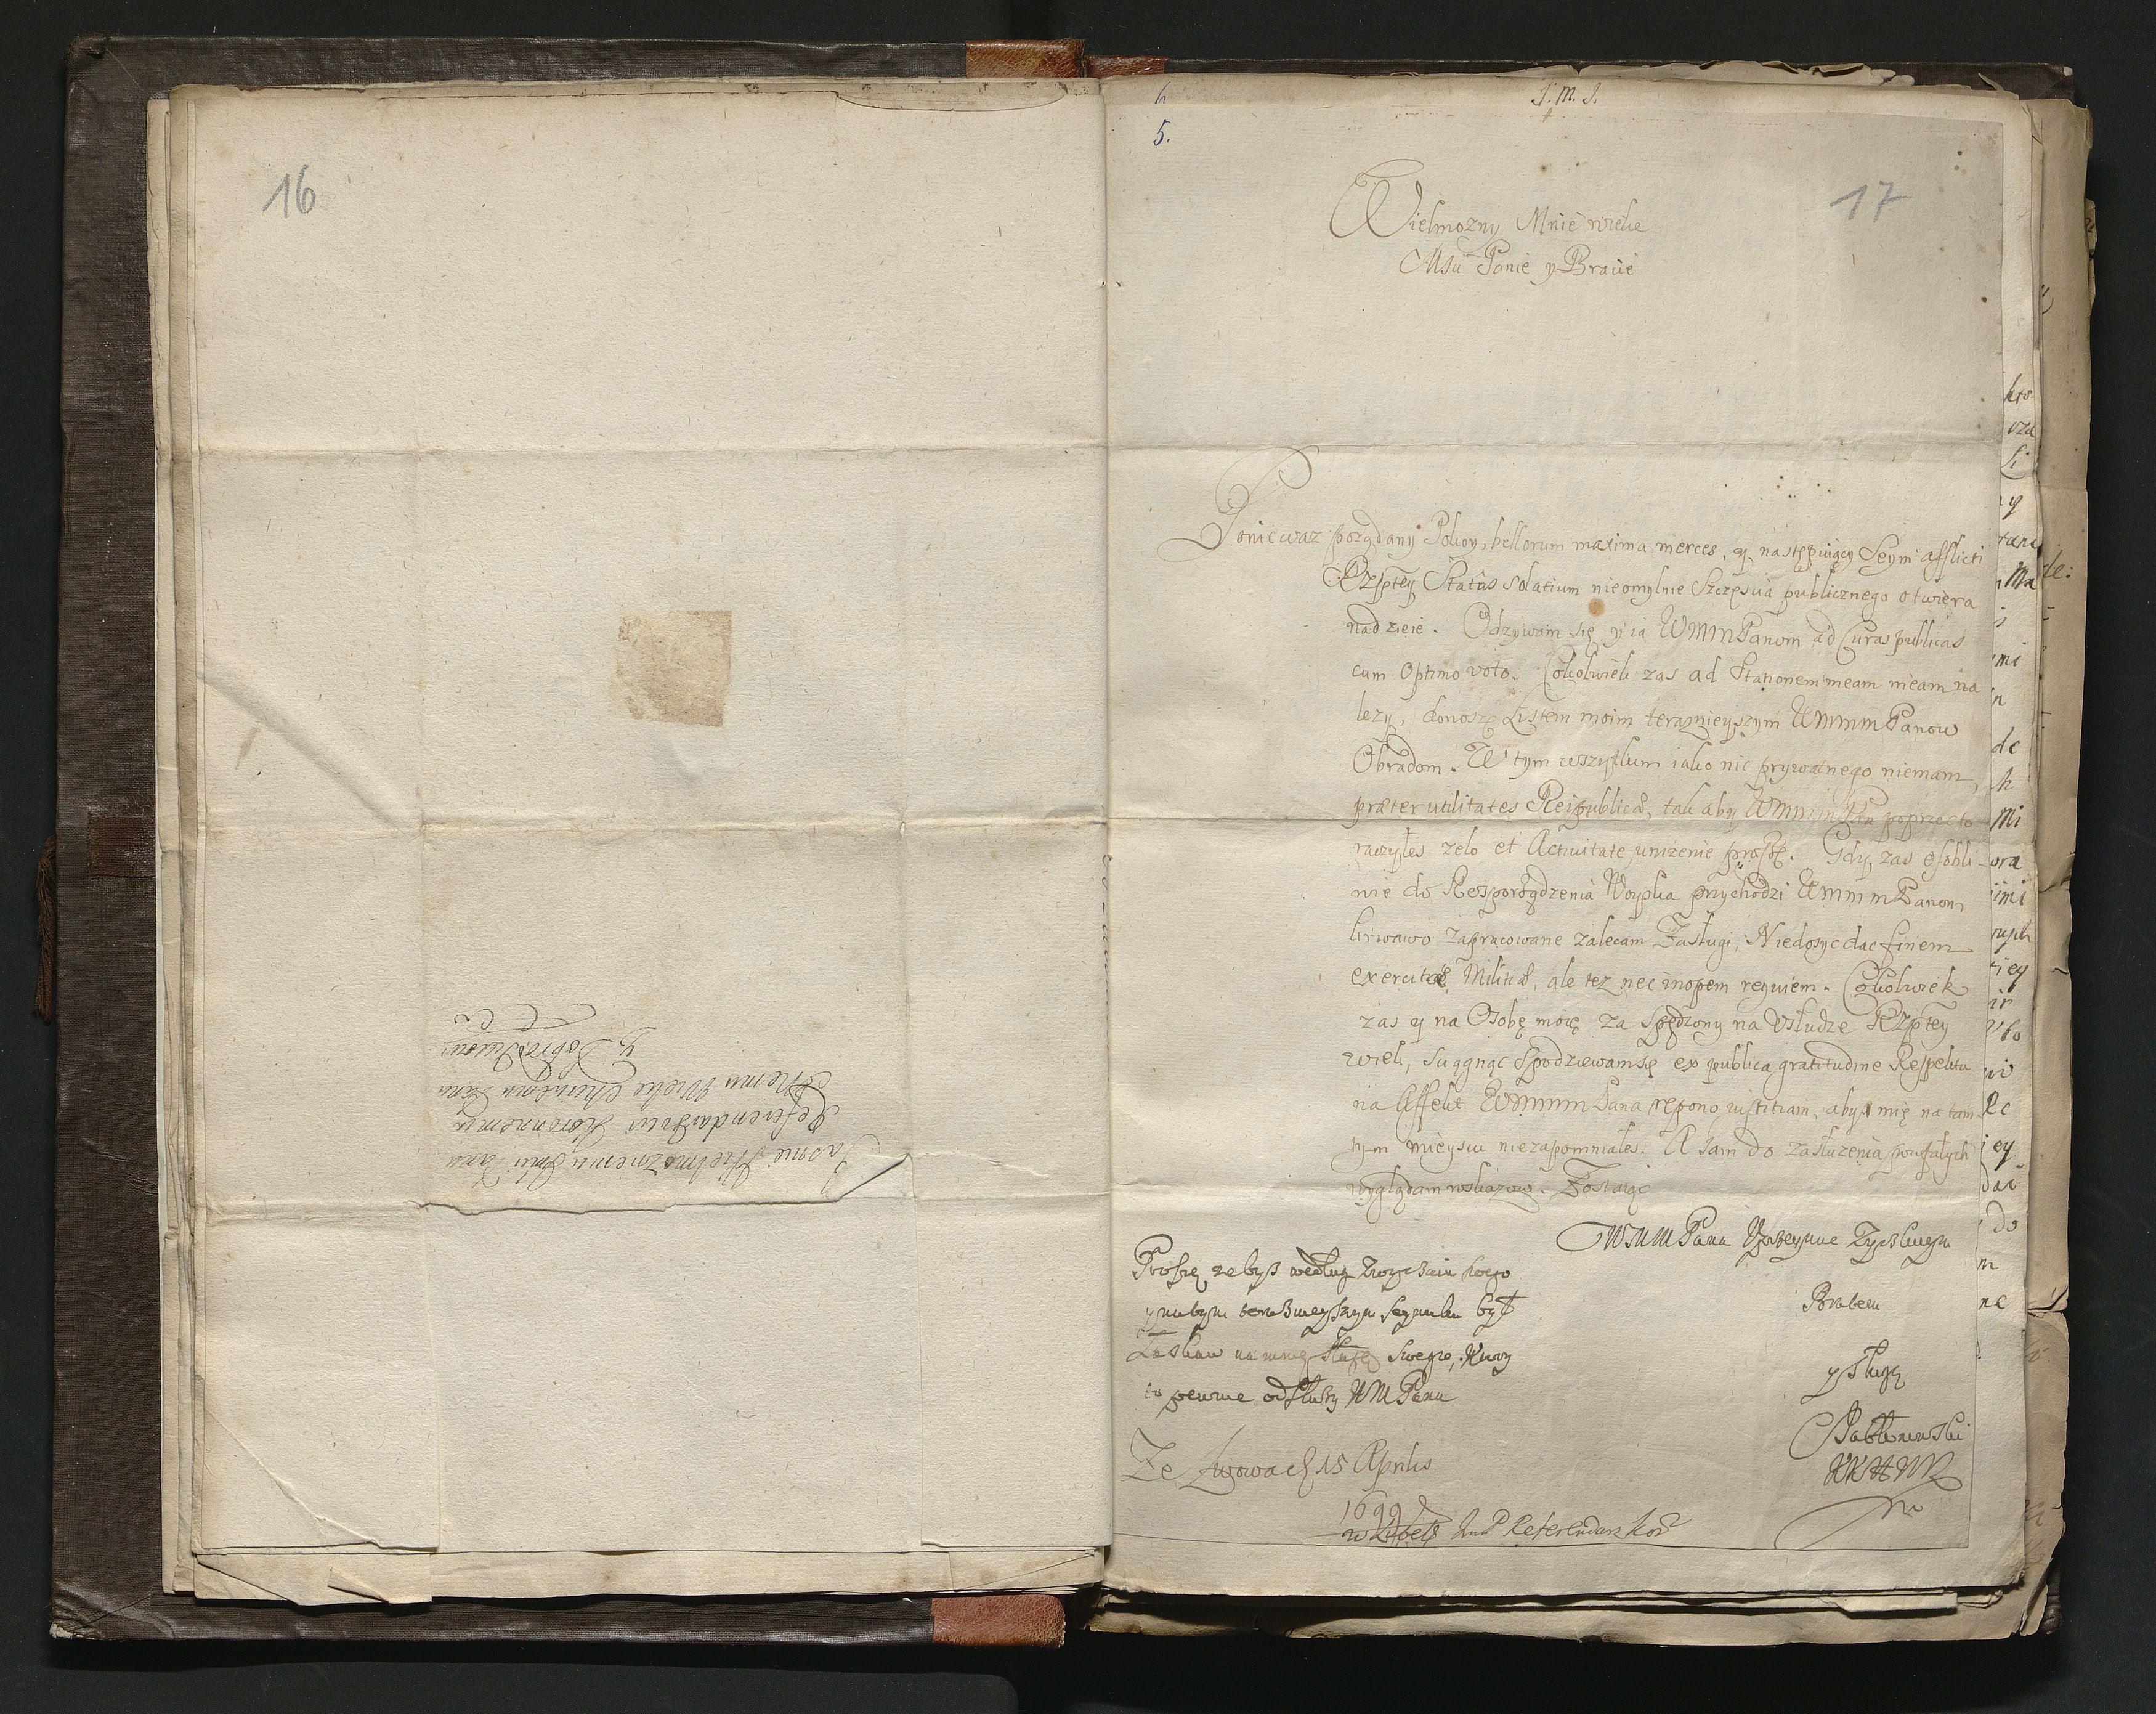 16
Jasnie Wielmoznemu Jmci Panu
Referendarzowi Koronnemu
Memu Wielce Panu
y Dobrodzieiowi
6
5.
J. M. J.
17
Wielmozny Mnie wielce
Msci Panie y Bracie
Poniewaz pożądany Pokoy, bellorum maxima merces, y następuiący Seym afflicti
Rzptey Status solatium nieomylnie Szczęscia publicznego otwiera
nadzieie. Odzywam się y ia WMMPanom ad Curas publicas
cum Optimo voto. Cokolwiek zas ad Stationem meam na
lezy, donoszę Listem moim teraznieyszym WMMMPanow
Obradom. W tym wszystkim iako nic prywatnego niemam,
præter utilitates Reipublicæ, tak aby WMMMPan poprzec to
raczyłes zelo et Activitate, unizenie proszę. Gdy zas osobli-
wie do Rozporządzenia Woyska przychodzi WMMMPanom
krwawo zapracowane zalecam Zasługi, Niedosyc dac finem
Militiæ, ale tez nec inopem requiem. Cokolwiek
zas y na Osobę moię za spędzony na Usłudze Rzptey
wiek, sciągnąc spodziewam się ex publica gratitudine Respektu
na Affekt WMMMPana repono iustitiam, abys mię na tam
tym mieyscu niezapomniałes. A sam do zasłuzenia poufałych
wyglądam wskazow. Zostaiąc
WMMPana Uprzeymie Zyczliwym
Bratem
y sługą
Jabłonowski
KKHWK
Proszę zebyś według zwyczaiu swego
y na tym teraznieyszym seymiku był
Łaskaw na mnię sługę swego, Ktory
to pewnie odsłuzy WMPanu
Ze Lwowa d 15 Aprilis
1699
Referendarz Kor